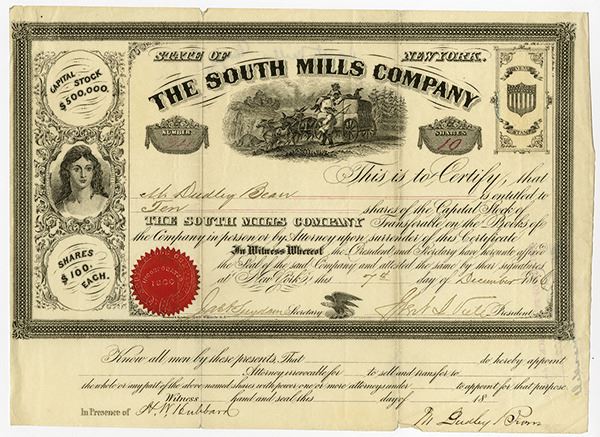 STATE OF NEW YORK.
THE SOUTH MILLS COMPANY
CAPITAL STOCK $500,000.
NUMBER
SHARES
10
This is to Certify, that
M. Dudley Bean is entitled to
Ten shares of the Capital Stock of
THE SOUTH MILLS COMPANY Transferable on the Books of
the Company in person or by Attorney upon surrender of this Certificate
In Witness Whereof the President and Secretary have hereunto affixed
the Seal of the said Company and attested the same by their signatures
at New York, this 7th day of December 186
SHARES $100. EACH.
Secretary
President
Know all men by these presents, That do hereby appoint
Attorney irrevocable for to sell and transfer to
the whole or any part of the above named shares with power one or more attorneys under to appoint for that purpose.
Witness hand and seal this day of 18
In Presence of H. W. Hubbard
M Dudley Bean